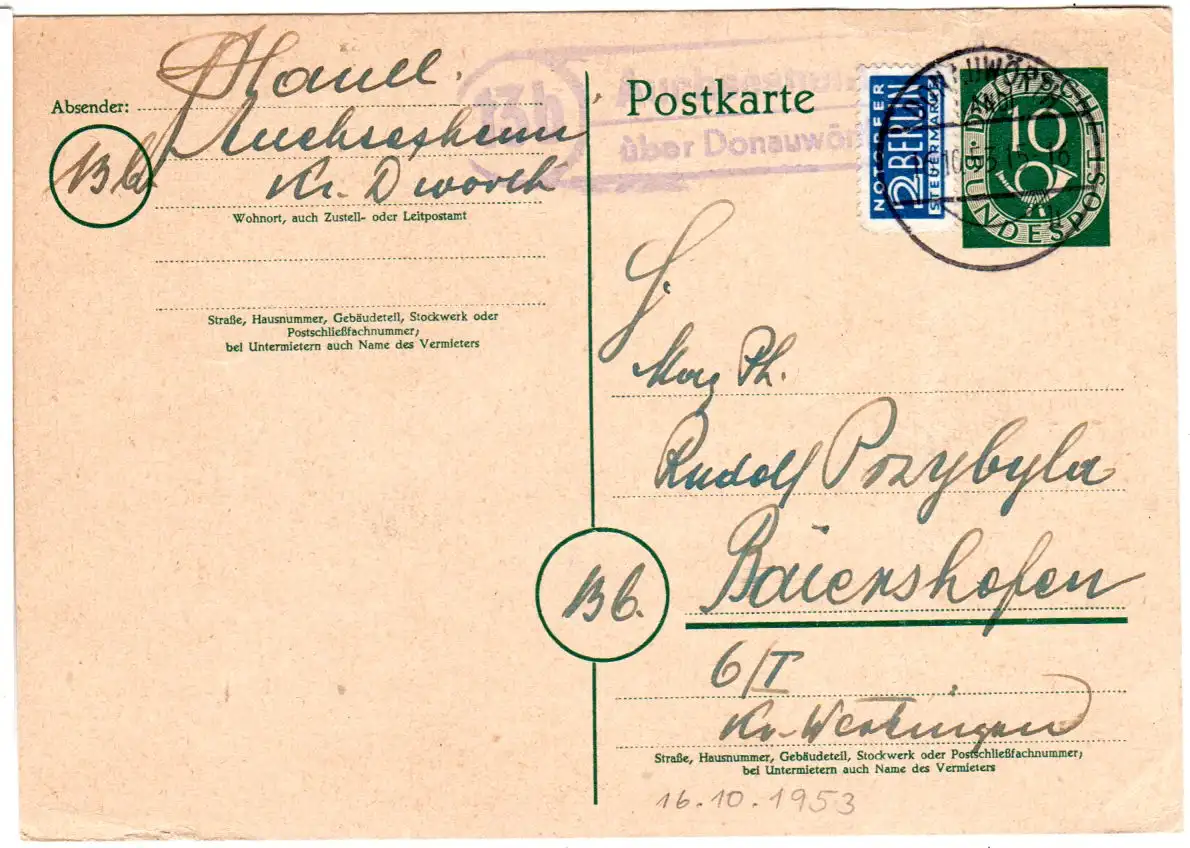 Absender:
Auchsesheim
Kr. Dwörth
13b
Wohnort, auch Zustell- oder Leitpostamt
Straße, Hausnummer, Gebäudeteil, Stockwerk oder
Postschließfachnummer;
bei Untermietern auch Name des Vermieters
13b
über Donauwö
Postkarte
NOTOPFER
2 BERLIN
STEUERMARKE
DEUTSCHE
BUNDESPOST
10
H.
Mag Ph.
Rudolf Przybyla
Baiershofen
13b.
6/I
Kr. Wertingen
Straße, Hausnummer, Gebäudeteil, Stockwerk oder Postschließfachnummer;
bei Untermietern auch Name des Vermieters
16.10.1953